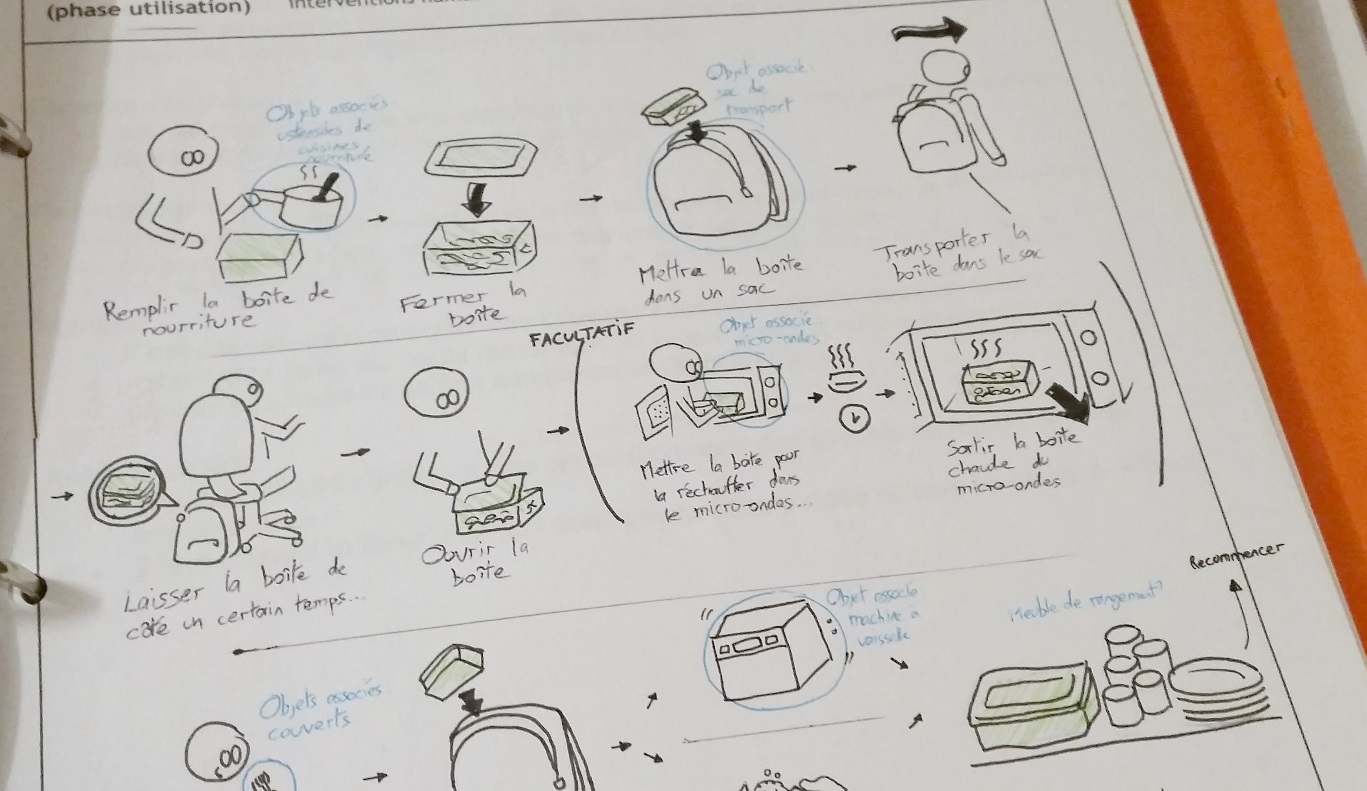 (phase utilisation)
Objets associés
ustensiles de
cuisines,
nourriture
Objet associé
sac de
transport
Remplir la boîte de
nourriture
Fermer la
boîte
Mettre la boîte
dans un sac
Transporter la
boîte dans le sac
FACULTATIF
Objet associé
micro-ondes
Laisser la boîte de
côté un certain temps...
Ouvrir la
boîte
Mettre la boîte pour
la réchauffer dans
le micro-ondes...
Sortir la boîte
chaude du
micro-ondes
Recommencer
Objets associés
couverts
Objet associé
machine à
vaisselle
Meuble de rangement?